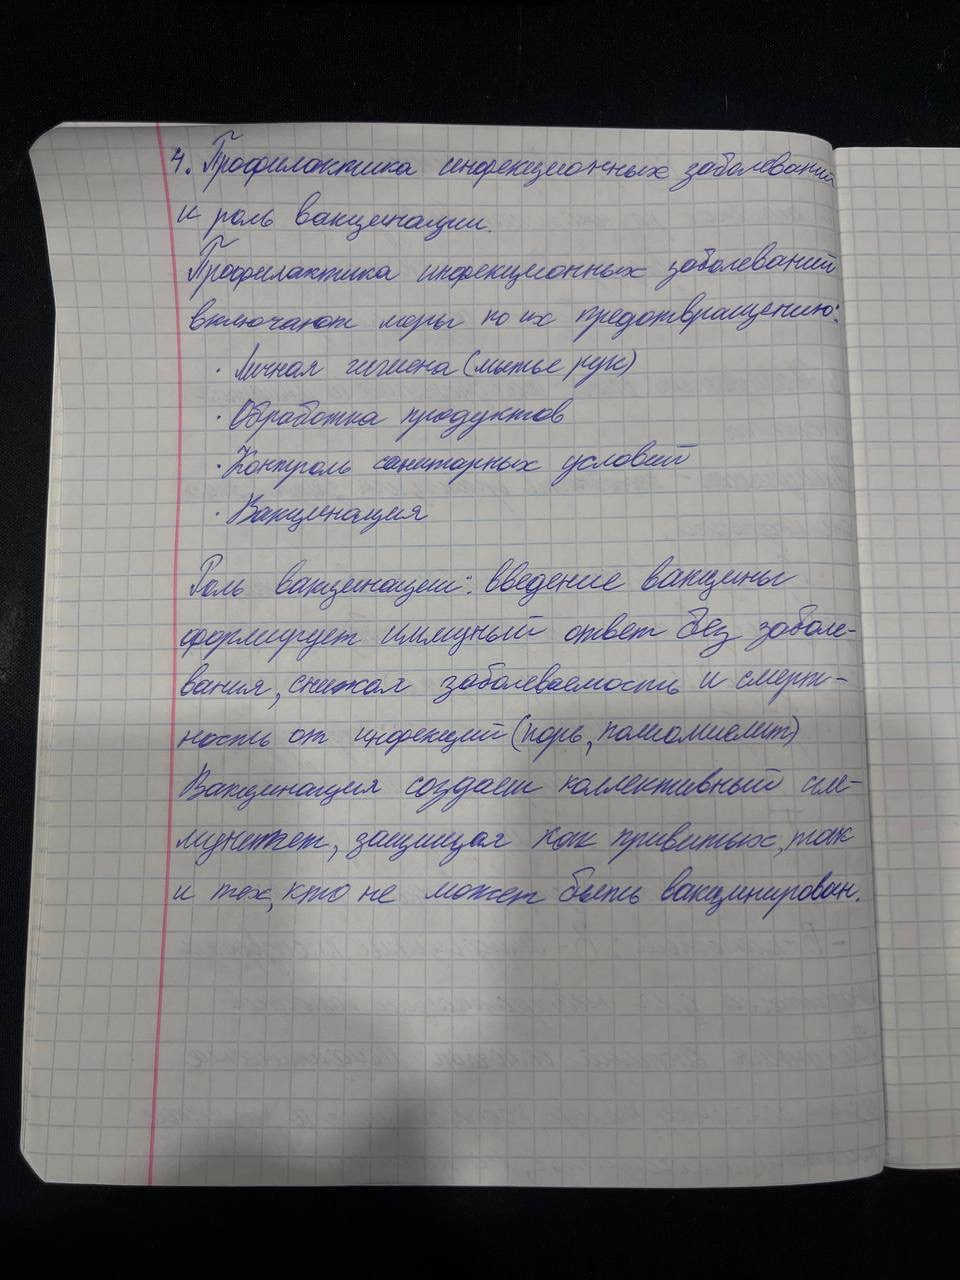 4. Профилактика инфекционных заболеваний
и роль вакцинации.
Профилактика инфекционных заболеваний
включают меры по их предотвращению:
· Личная гигиена (мытье рук)
· Обработка продуктов
· Контроль санитарных условий
· Вакцинация
Роль вакцинации: введение вакцины
формирует иммуный ответ без заболе-
вания, снижая заболеваемость и смерт-
ность от инфекций (корь, полиомиелит)
Вакцинация создает коллективный им-
мунитет, защищая как привитых, так
и тех, кто не может быть вакцинирован.